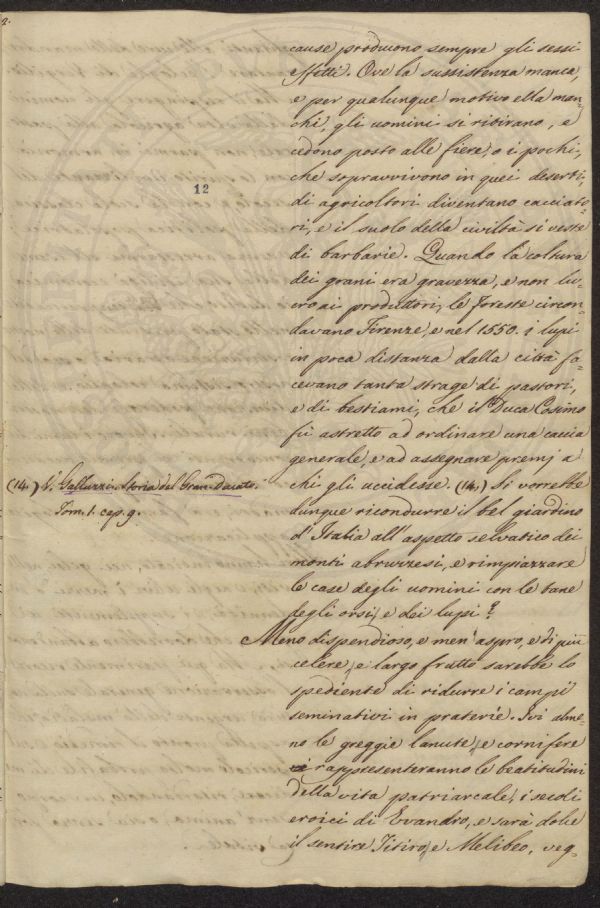 2.
cause producono sempre gli stessi
effetti. Ove la sussistenza manca,
e per qualunque motivo ella man=
chi, gli uomini si ritirano, e
cedono posto alle fiere, o i pochi,
che sopravvivono in quei deserti,
di agricoltori diventano cacciato=
ri, e il suolo della civiltà si veste
di barbarie. Quando la coltura
dei grani era gravezza, e non lu=
cro ai produttori, le foreste circon=
davano Firenze, e nel 1550. i lupi
in poca distanza dalla città fa=
cevano tanta strage di pastori,
e di bestiami, che il Duca Cosimo
fù astretto ad ordinare una caccia
generale, e ad assegnare premj a
chi gli uccidesse. (14.) Si vorrebbe
dunque ricondurre il bel giardino
d'Italia all'aspetto selvatico dei
monti abruzzesi, e rimpiazzare
le case degli uomini con le tane
degli orsi, e dei lupi?
Meno dispendioso, e men'aspro, e di più
celere, e largo frutto sarebbe lo
spediente di ridurre i campi
seminativi in praterie. Ivi alme=
no le greggie lanute, e cornifere
rappresenteranno le beatitudini
della vita patriarcale, i secoli
eroici di Evandro, e sarà dolce
il sentire Titiro, e Melibeo, veg=
12
(14.) V. Galluzzi. Storia del Gran-Ducato.
Tom. 1. cap. 9.